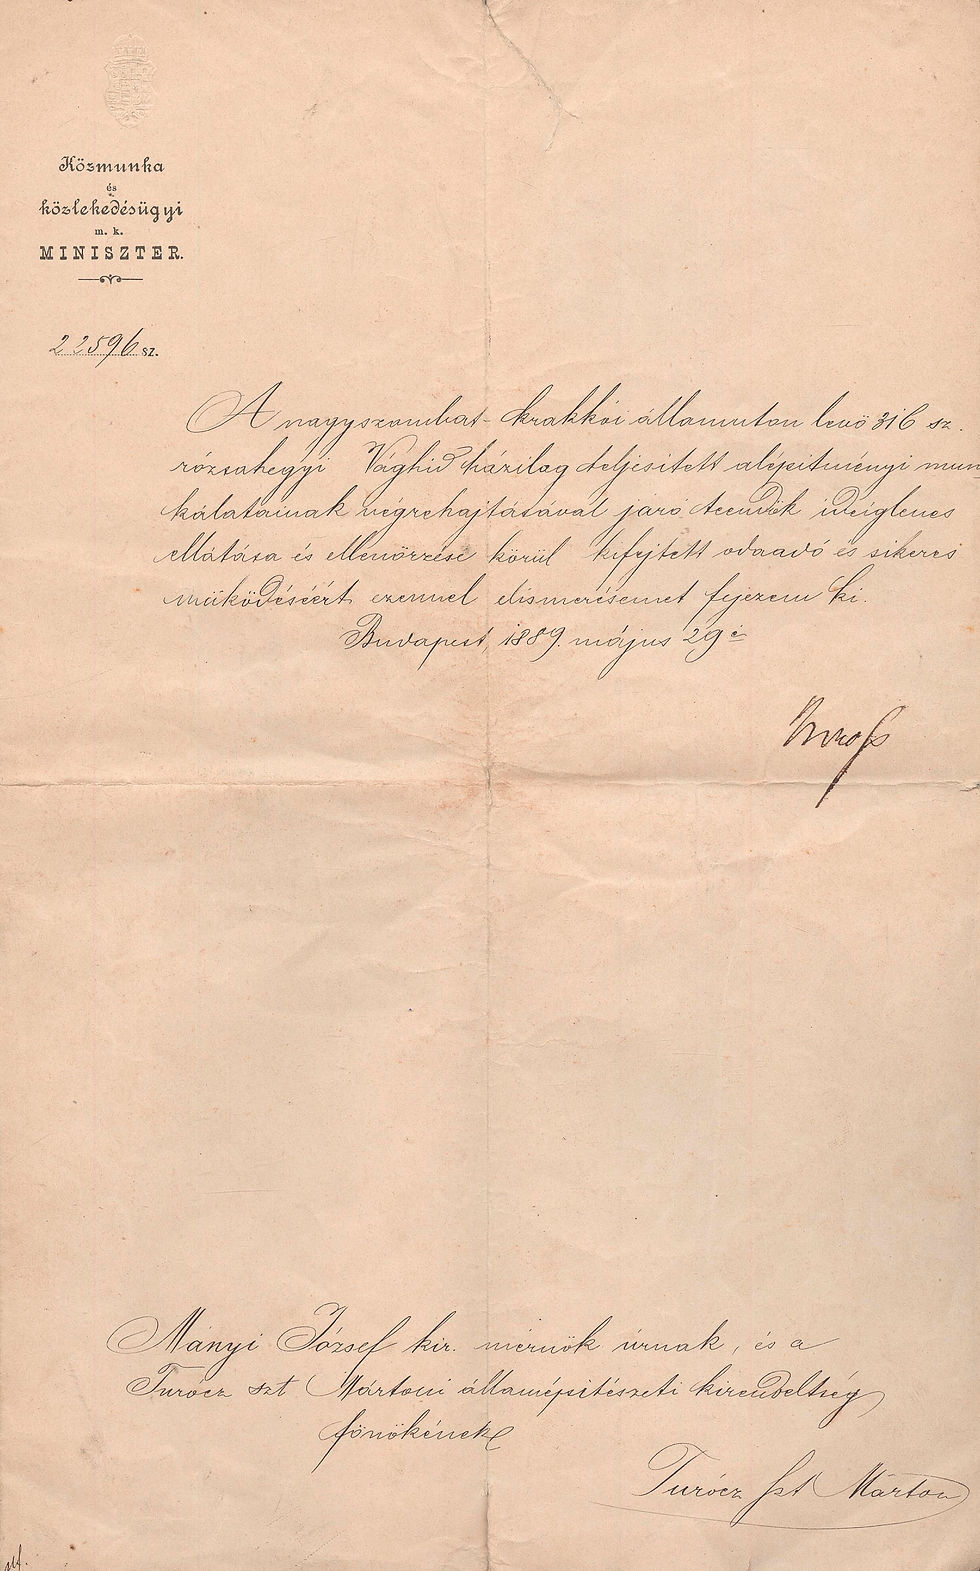 Közmunka
és
közlekedésügyi
m. k.
MINISZTER.
22596 sz.
A nagyszombat-krakkói államuton levő 316 sz.
rózsahegyi Vághid házilag teljesitett alépitményi mun
kálatainak végrehajtásával járó teendők ideiglenes
ellátása és ellenőrzése körül kifejtett odaadó és sikeres
működéséért ezennel elismerésemet fejezem ki.
Budapest, 1889. május 29 én
Mányi József kir. mérnök úrnak, és a
Turócz szt Mártoni államépitészeti kirendeltség
főnökének
Turócz Szt Márton